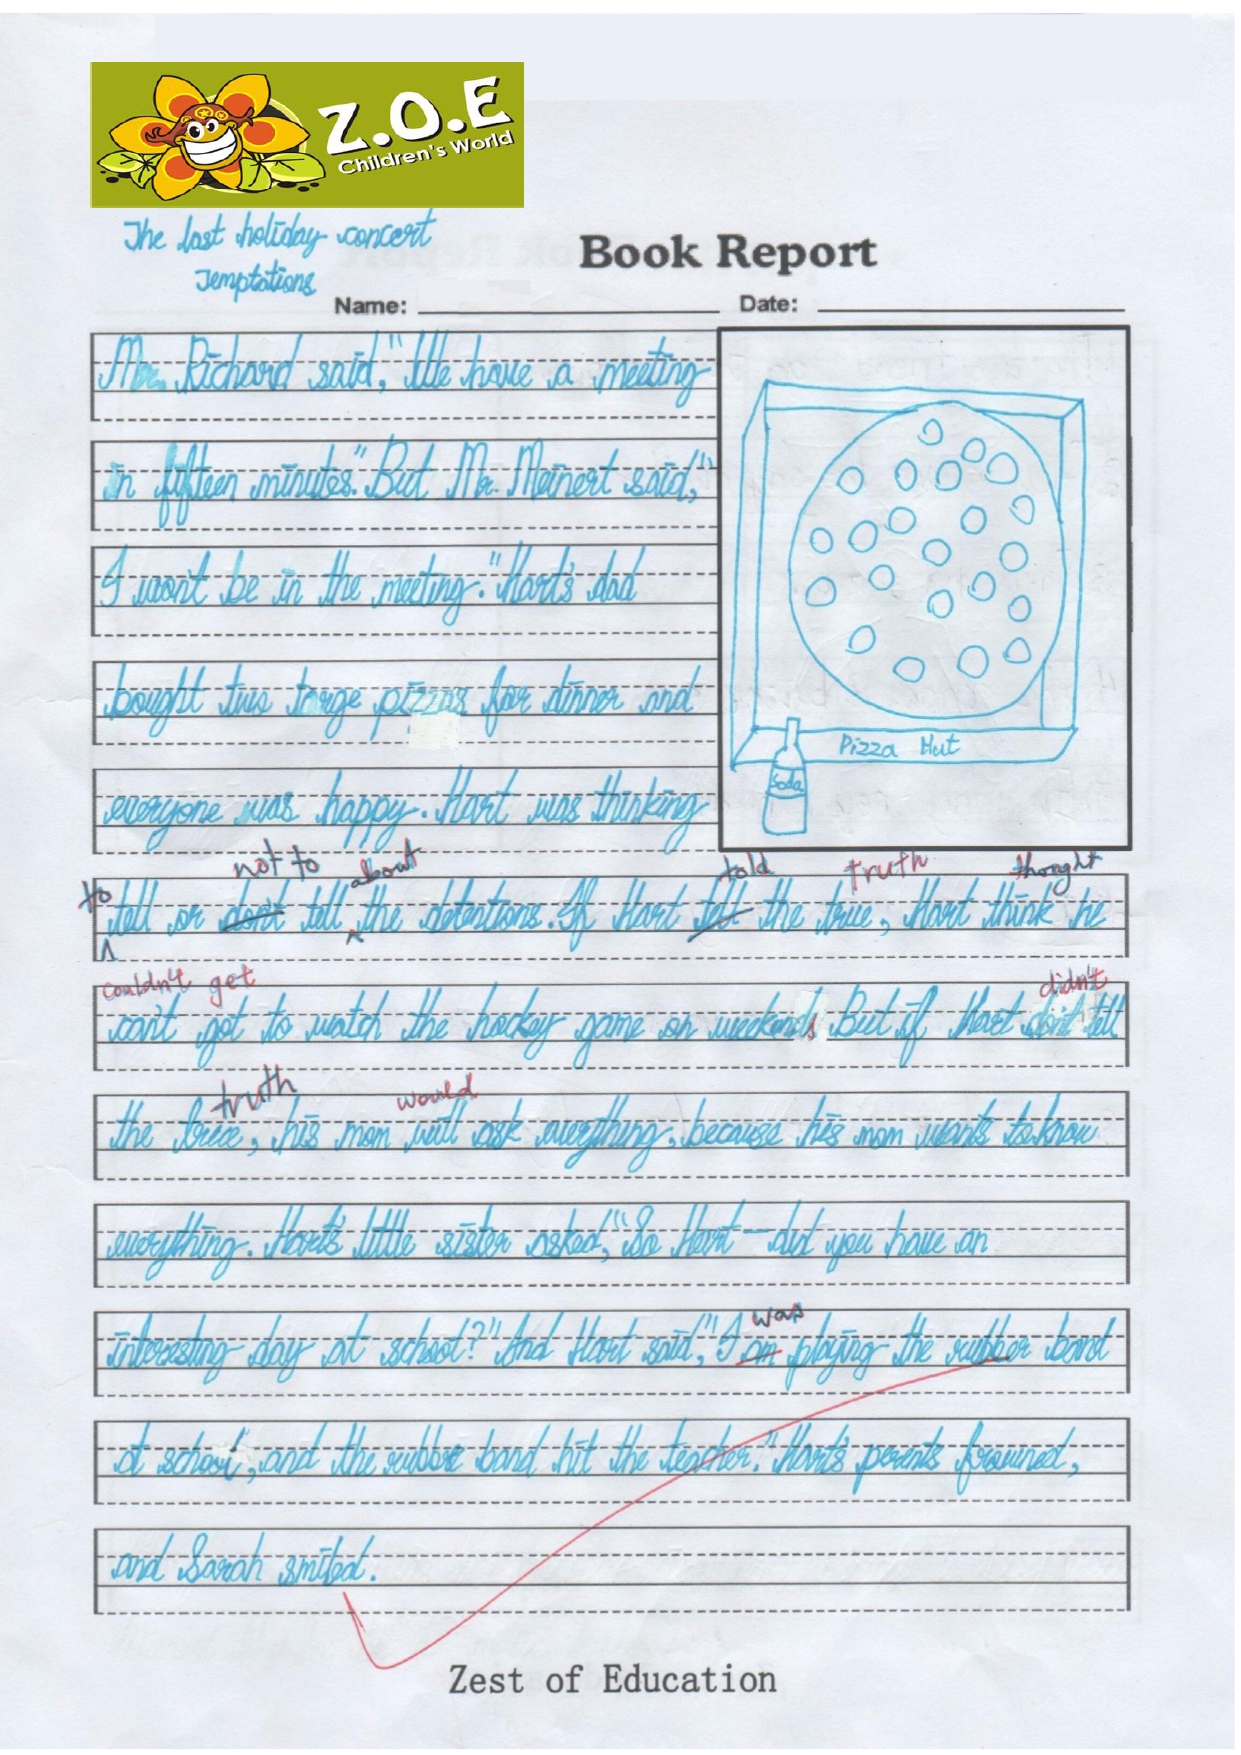 Z.O.E
Children's World
The last holiday concert
Temptations
Book Report
Name:
Date:
Mr. Richard said, "We have a meeting
in fifteen minutes." But Mr. Meinert said, "
I won't be in the meeting." Hart's dad
bought two large pizzas for dinner and
everyone was happy. Hart was thinking
not to about told truth thought
to tell or don't tell the detentions. If Hart tell the true, Hart think he
couldn't get didn't
can't got to watch the hockey game on weekends. But if Hart don't tell
truth would
the true, his mom will ask everything, because his mom wants to know
everything. Hart's little sister asked, "So Hart—did you have an
was
interesting day at school?" And Hart said, "I am playing the rubber band
at school, and the rubber band hit the teacher." Hart's perents frowned,
and Sarah smiled.
Pizza Hut
Soda
Zest of Education